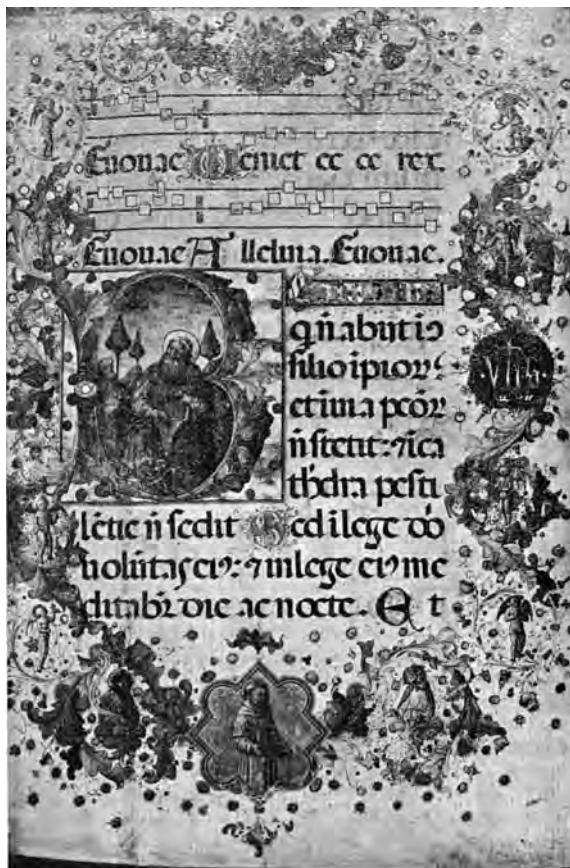 Euouae Veniet ec ce rex.
Euouae A lleluia. Euouae.
B
qn̄ abiit i ꝯ
silio ipioꝝ:
et i uia pcōꝝ
n̄ stetit: ⁊ i ca
thedra pesti
YHS
lētie n̄ sedit Sed i lege dō
uolūtas eiꝰ: ⁊ in lege eiꝰ me
ditabr̄ die ac nocte. Et